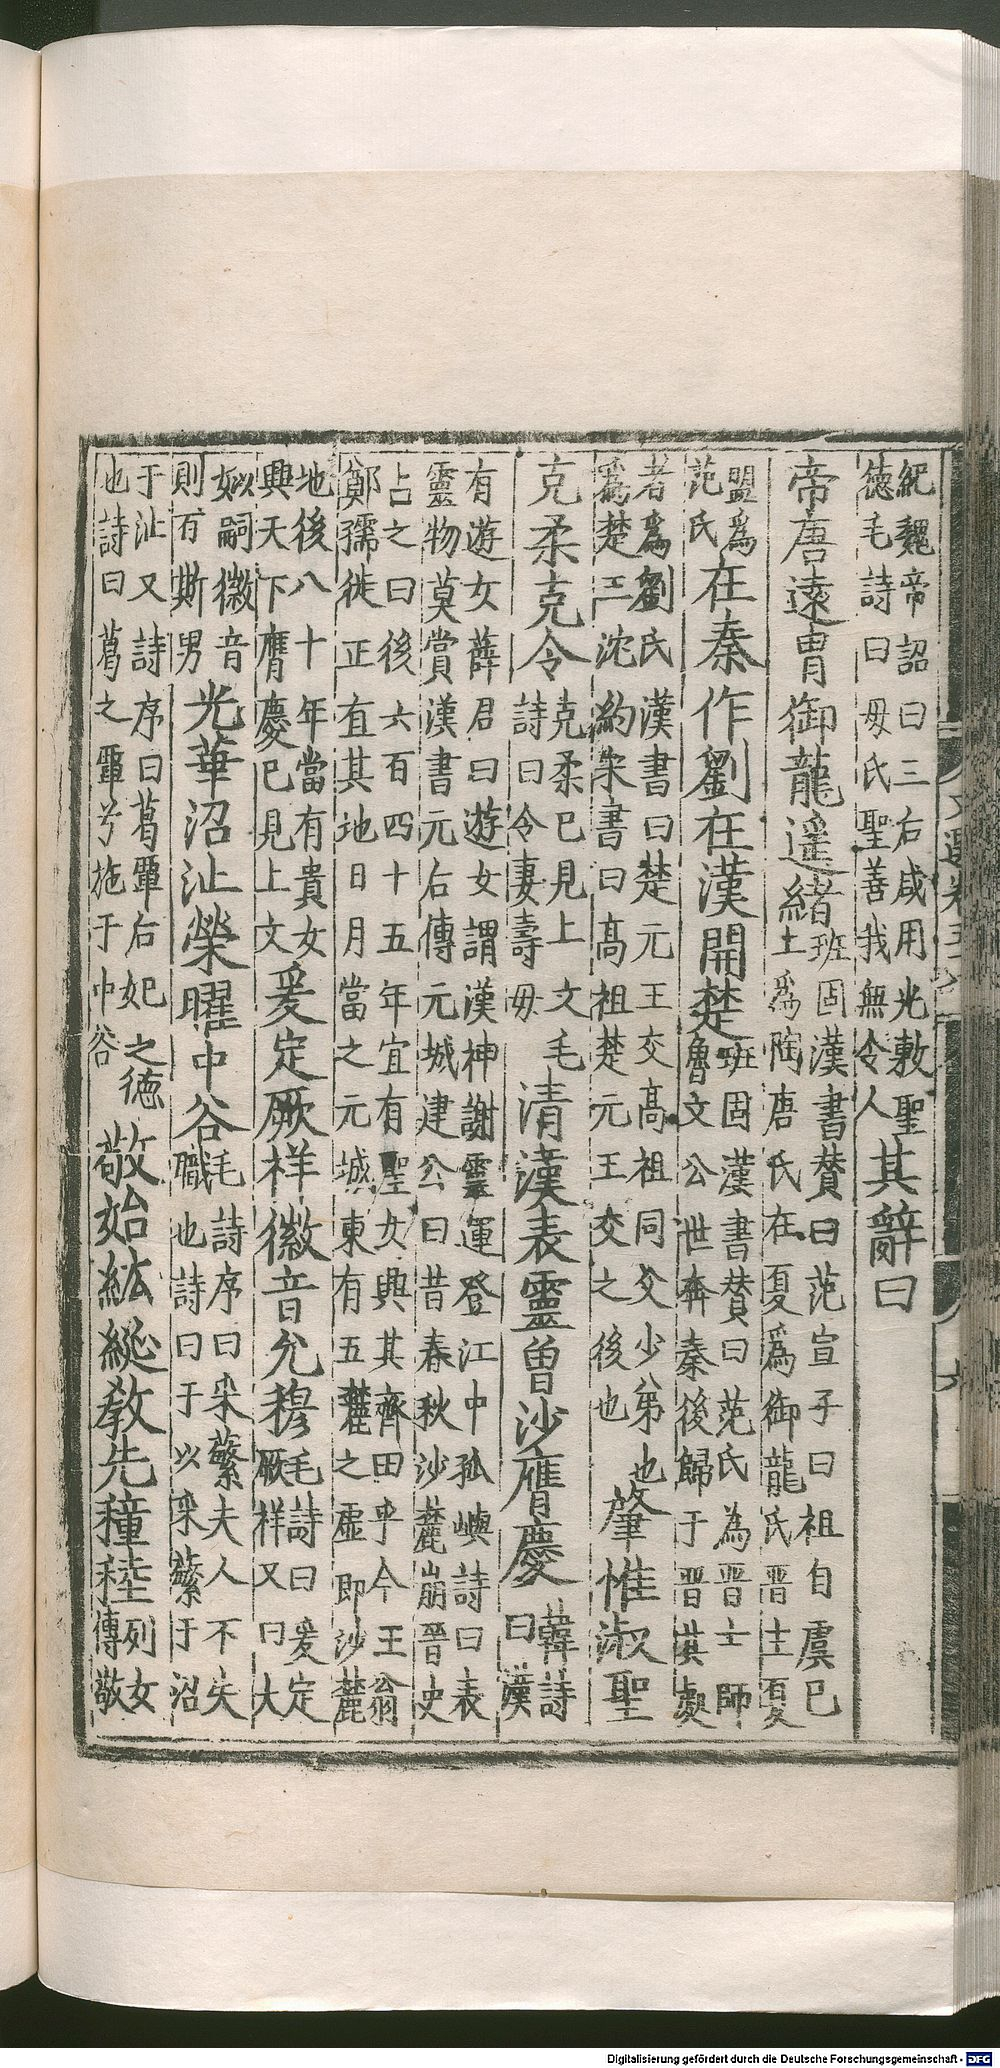 紀魏帝詔曰三后咸用光敷聖
德毛詩曰母氏聖善我無令人
其辭曰
帝唐遠胄御龍遥緒
班固漢書贊曰范宣子曰祖自虞已
上爲陶唐氏在夏爲御龍氏晋主夏
盟爲
范氏
在秦作劉在漢開楚
班固漢書贊曰范氏為晋士師
魯文公世奔秦後歸于晋其處
者爲劉氏漢書曰楚元王交高祖同父少弟也
爲楚王沈約宋書曰高祖楚元王交之後也
肇惟淑聖
克柔克令
克柔已見上文毛
詩曰令妻壽母
清漢表靈曾沙膺慶
韓詩
曰漢
有遊女薛君曰遊女謂漢神謝靈運登江中孤嶼詩曰表
靈物莫賞漢書元后傳元城建公曰昔春秋沙麓崩晉史
占之曰後六百四十五年宜有聖女興其齊田乎今王翁
鄭孺徙正直其地日月當之元城東有五麓之虛即沙麓
地後八十年當有貴女
興天下膺慶已見上文
爰定厥祥徽音允穆
毛詩曰爰定
厥祥又曰大
姒嗣徽音
則百斯男
光華沼沚榮曜中谷
毛詩序曰采蘩夫人不失
職也詩曰于以采蘩于沼
于沚又詩序曰葛覃后妃之德
也詩曰葛之覃兮施于中谷
敬始紘綖教先穜稑
列女
傳敬
Digitalisierung gefördert durch die Deutsche Forschungsgemeinschaft - DFG